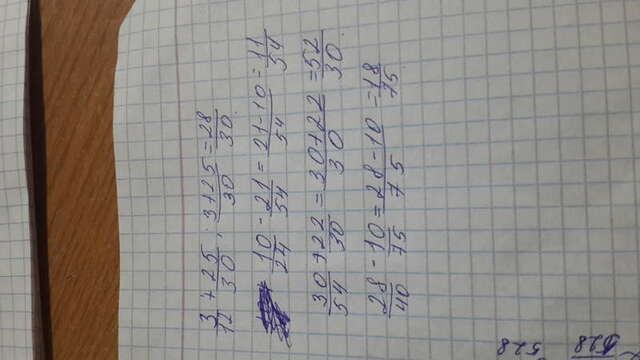 3/12 + 25/30 ; 3+25/30 = 28/30
10/24 - 21/54 = 21-10/54 = 11/54
30/54 + 22/30 = 30+22/30 = 52/30
28/40 - 10/75 = 28-10/75 = 18/75
528